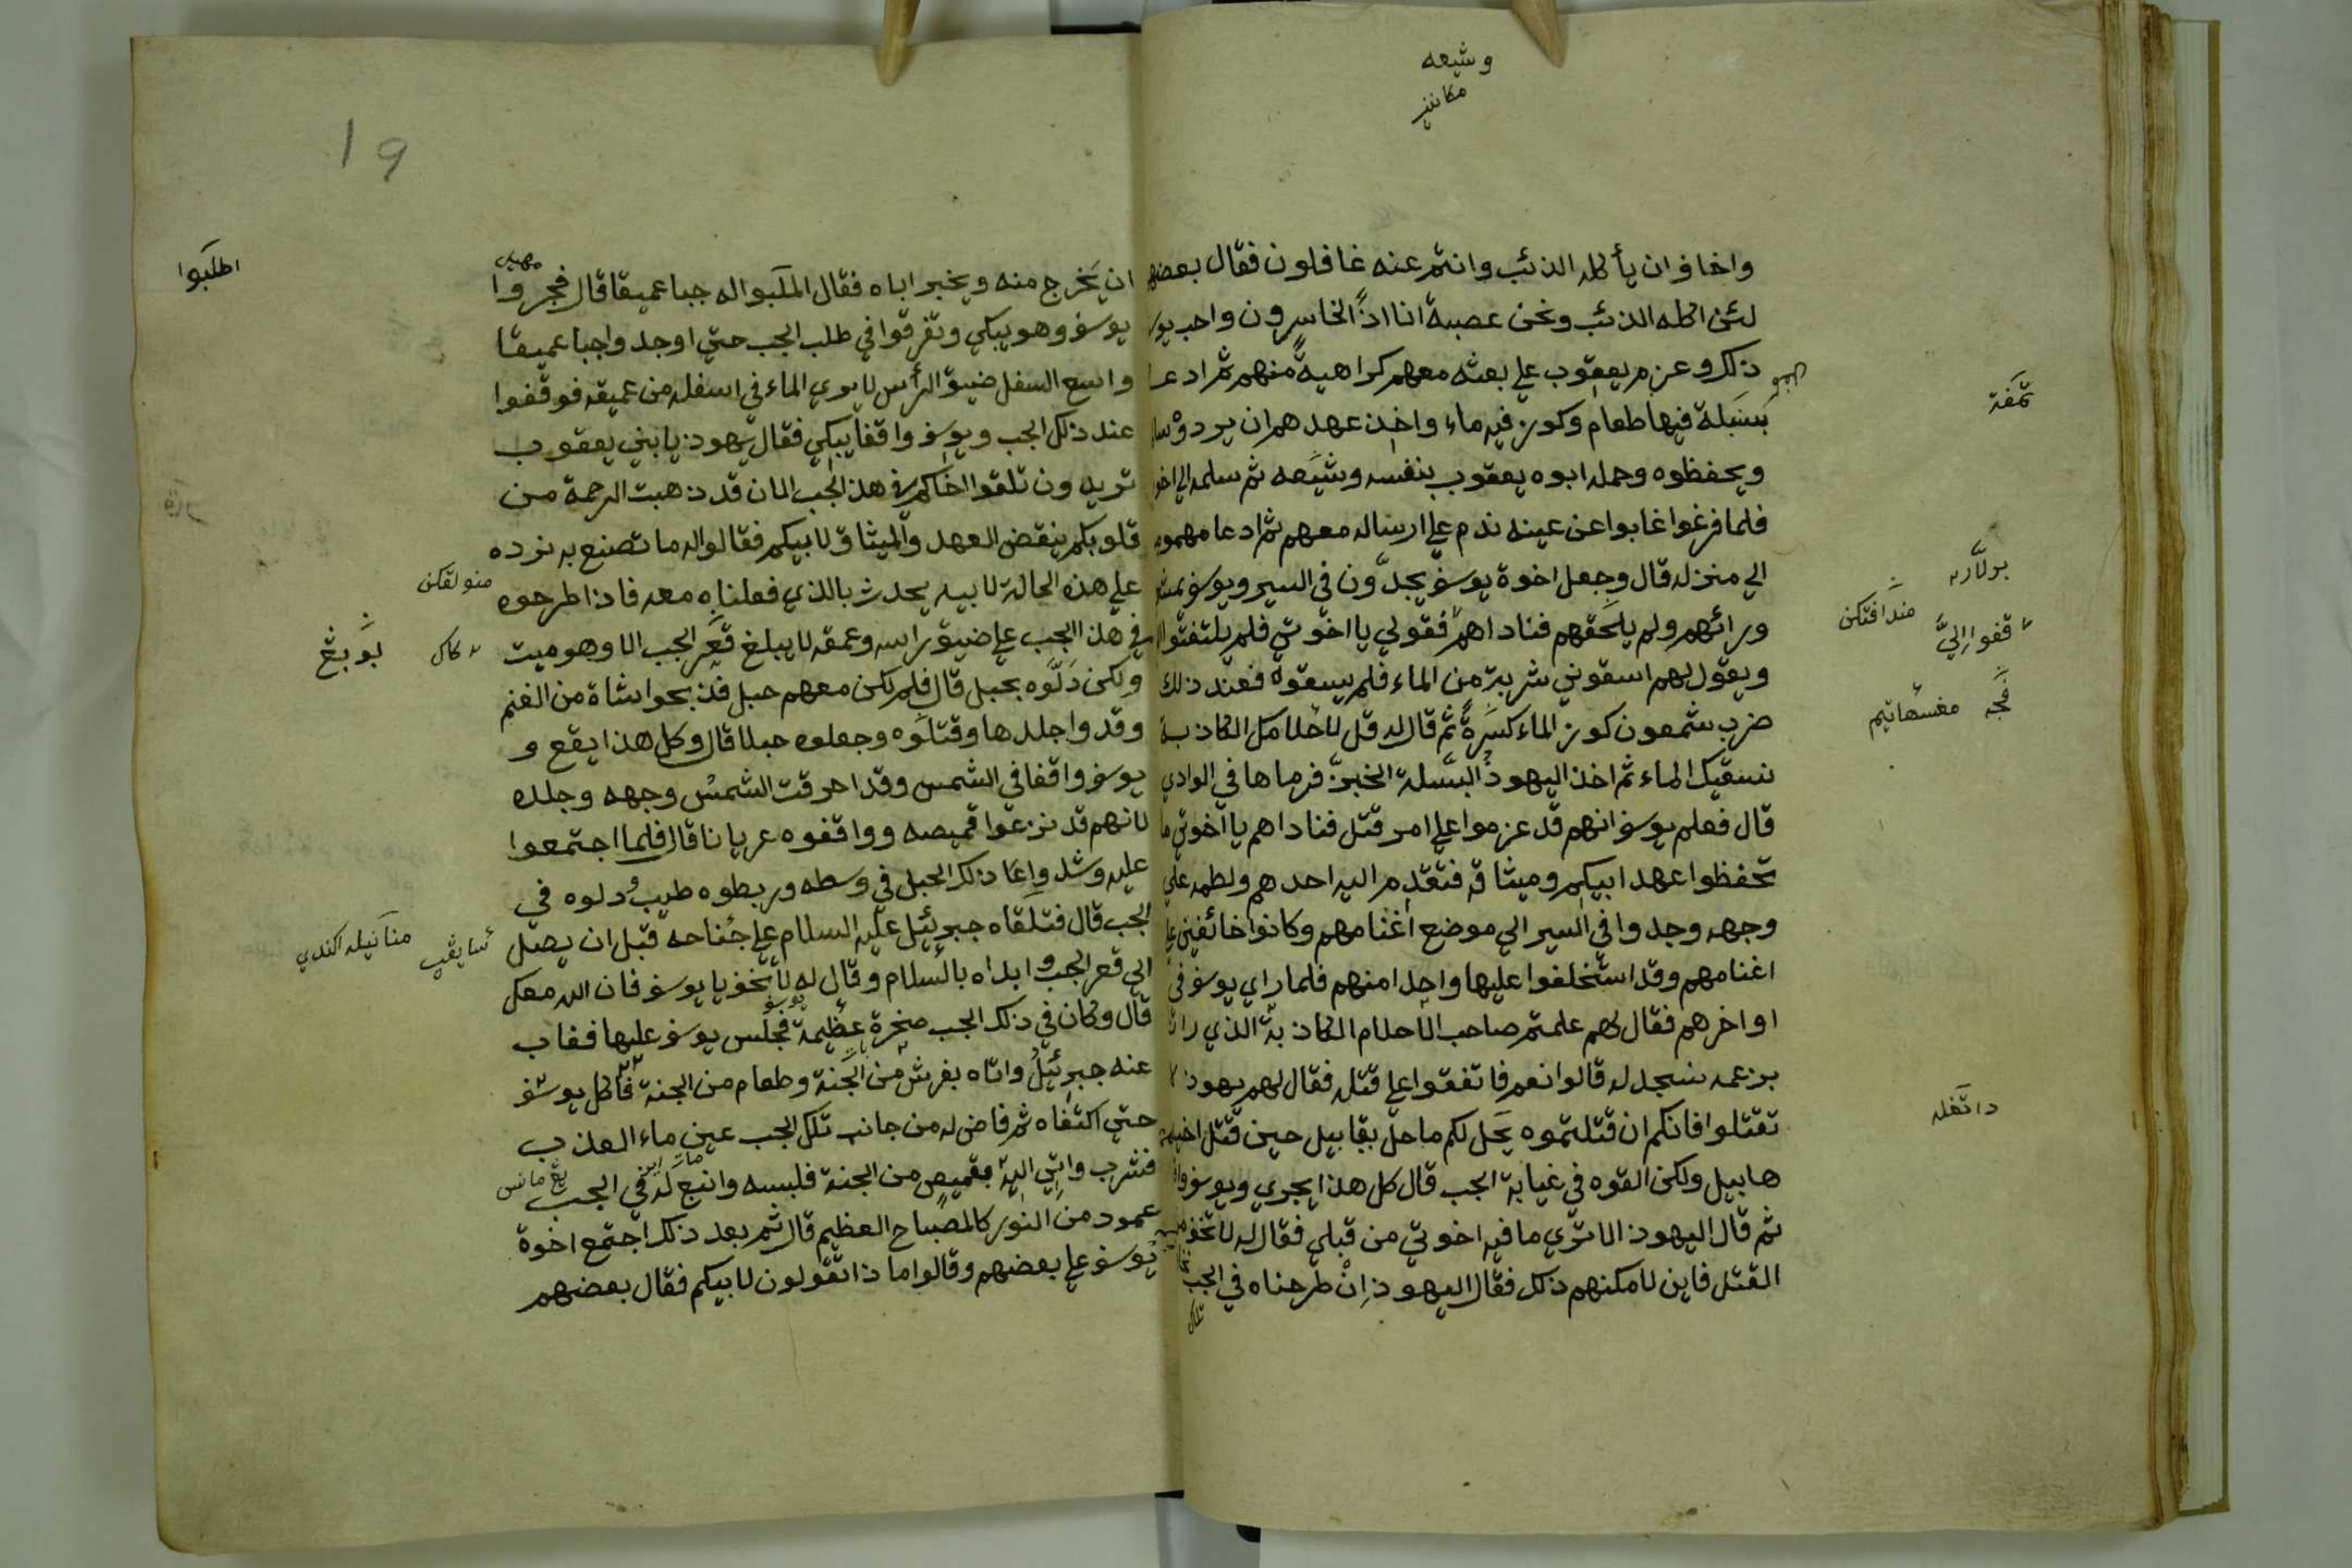 وشيعه
واخاف ان يأكله الذئب وانتم عنه غافلون فقال بعضهم
لئن اكله الذئب ونحن عصبة انا اذًا لخاسرون واحب يو
ذلك وعزم يعقوب علي بعثه معهم كراهية منهم ثم ادعا
بسلة فيها طعام وكوز فيه ماء واخذ عهدهم ان يردوْ
ويحفظوه وحمله ابوه يعقوب بنفسه وشيّعه ثم سلمه الي اخو
فلما فرغوا غابوا عن عينه ندم علي ارساله معهم ثم ادعا مهموم
الي منزله قال وجعل اخوة يوسف يجدّون في السير ويوسف
ورائهم ولم يلحقهم فناداهم فقولي يا اخوتي فلم يلتفتوا
ويقول لهم اسقوني شربة من الماء فلم يسقوه فعند ذلك
ضرب شمعون كوز الماء كسرةً ثم قال له قل للاحلامك الكاذبة
نسقيك الماء ثم اخذ اليهوذُ السّلة الخبزّ فرماها في الوادي
قال فعلم يوسف انهم قد عزموا علي امر قتل فناداهم يا اخوتي ما
تحفظوا عهد ابيكم وميثاقه فتقدم اليه احدهم ولطمه علي
وجهه وجدوا في السير الي موضع اغنامهم وكانوا خائفين
اغنامهم وقد استخلفوا عليها واحدا منهم فلما راي يوسف في
اواخرهم فقال لهم علمتم صاحب الاحلام الكاذبة الذي
بزعمه نسجد له قالوا نعم فاتفقوا علي قتله فقال لهم يهوذ لا
تقتلوا فانكم ان قتلتموه يحل لكم ما حل بقابيل حين قتل اخيه
هابيل ولكن القوه في غيابة الجب قال كل هذا يجري ويوسف
ثم قال اليهوذ الا تري ما فيه اخوتي من قبلي فقال له لا تخف
القتل فاين لامكنهم ذلك فقال اليهوذ اِنْ طرحناه في الجب
تمكَفة
برلاّره
مندافتكن
قفوا اِليَّ
دانقله
19
ان يَخرج منه ويخبر اباه فقال اطلبوا له جبا عميقا قال فجروا
يوسف وهو يبكي وتفرقوا في طلب الجب حتي اوجدوا جبا عميقا
واسع السفل ضيق الرأس لا يري الماء في اسفله من عميقه فوقفوا
عند ذلك الجب ويوسف واقفا يبكي فقال يهوذ يا بني يعقوب
تريدون تلقوا اخاكم في هذا الجب الان قد ذهبت الرحمة من
قلوبكم بنقض العهد والميثاق لابيكم فقالوا له ما تصنع به نرده
علي هذه الحالة لابيه يحدث بالذي فعلناه معه فاذا طرحوه
في هذا الجب علي ضيق راسه وعمقه لا يبلغ قعر الجب الا وهو ميت
ولكن دَلّوه بحبل قال فلم يكن معهم حبل فذبحوا شاة من الغنم
وقدوا جلدها وقتلَوه وجعلوه حبلا قال وكل هذا يقع و
يوسف واقفا في الشمس وقد احرقت الشمسُ وجهه وجلده
لانهم قد نزعوا قميصه وواقفوه عريانا قال فلما اجتمعوا
عليه وشدوا عَا ذلك الحبل في وسطه وربطوه طيب ودلوه في
الجب قال فتلَقاه جبرئيل عليه السلام علي جناحه قبل ان يصل
الي قعر الجب وابداه بالسلام وقال له لا تخف يا يوسف فان الله معك
قال وكان في ذلك الجب صخرة عظيمة فجلس يوسف عليها فغاب
عنه جبرئيلُ واتاه بفرش من الجنة وطعام من الجنة فاكل يوسف
حتي اكتفاه ثم فاض له من جانب تلك الجب عين ماء العذب
فشرب واتي اليه بقميص من الجنة فلبسه وانبع له في الجب
عمود من النور كالمصباح العظيم قال ثم بعد ذلك اجتمع اخوة
يوسف علي بعضهم وقالوا ما ذا تقولون لابيكم فقال بعضهم
اطلَبوا
منولقكن
كاك
بوَبڠ
سايڤ
يڠ مانس